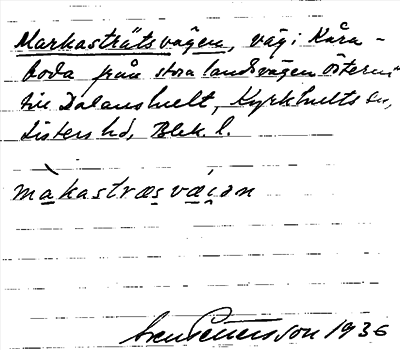 Markasträtsvägen, väg i Kåra-
boda från stora landsvägen österut
till Dalanshult, Kyrkhults sn,
Listers hd, Blek. l.
màkastræsvæiən
Sven Petersson 1936